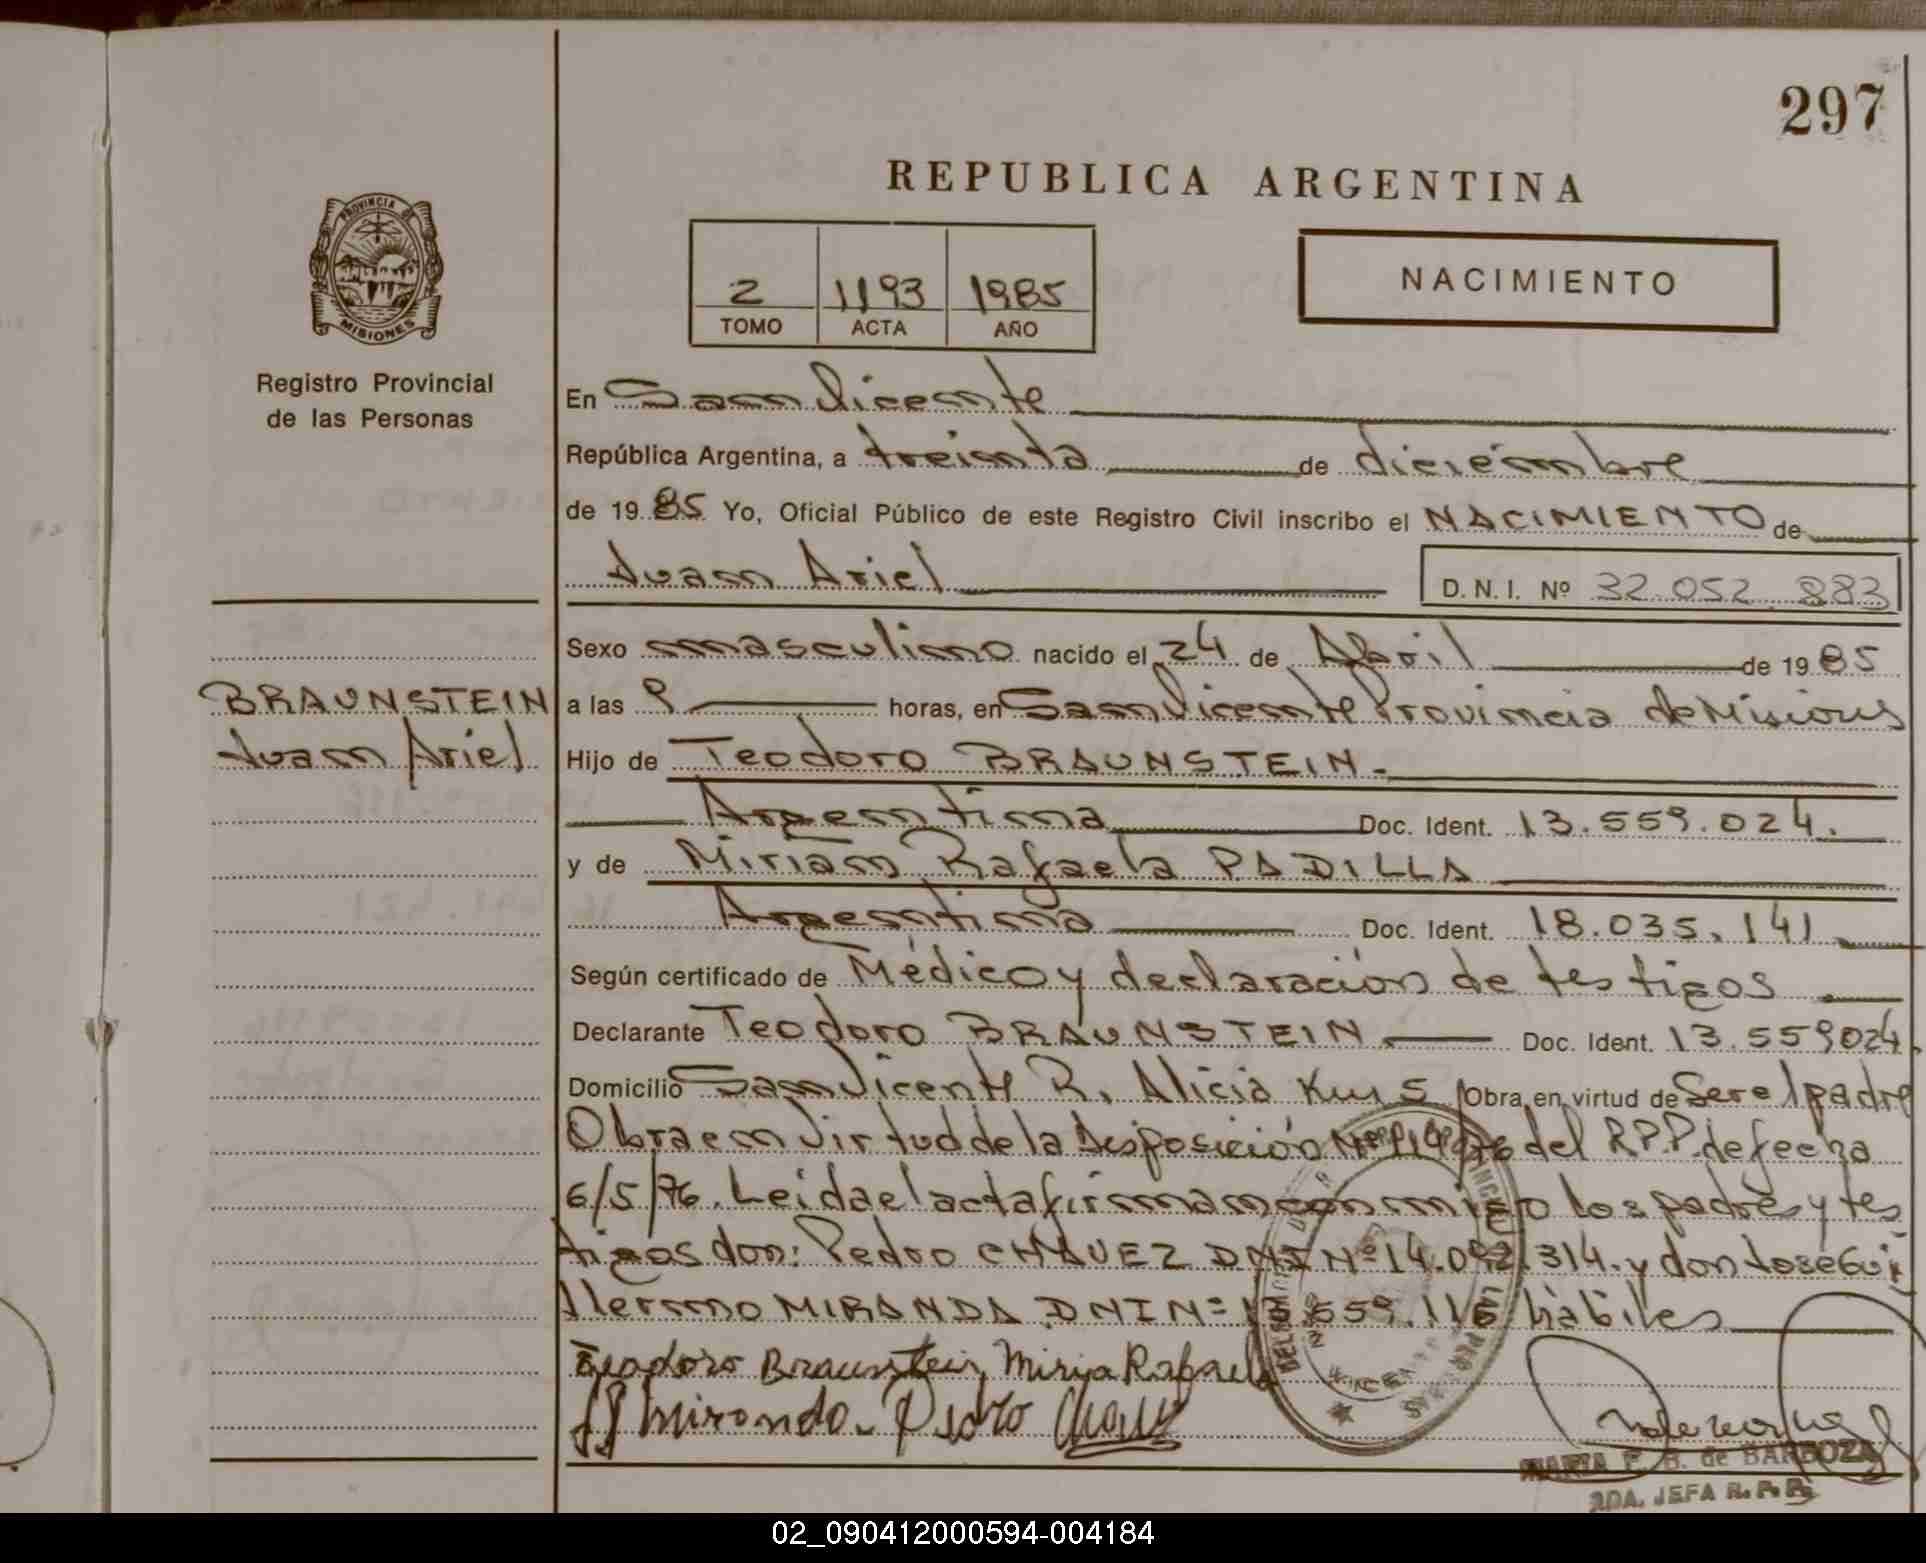 297
REPUBLICA ARGENTINA
PROVINCIA DE
MISIONES
2 1193 1985
TOMO ACTA AÑO
NACIMIENTO
Registro Provincial
de las Personas
En San Vicente
República Argentina, a treinta de diciembre
de 19 85 Yo, Oficial Público de este Registro Civil inscribo el NACIMIENTO de
Juan Ariel D.N.I. Nº 32.052.883
Sexo masculino nacido el 24 de Abril de 19 85
BRAUNSTEIN
Juan Ariel
a las 9 horas, en San Vicente Provincia de Misiones
Hijo de Teodoro BRAUNSTEIN.
Argentina Doc. Ident. 13.559.024.
y de Miriam Rafaela PADILLA
Argentina Doc. Ident. 18.035.141
Según certificado de Médico y declaración de testigos
Declarante Teodoro BRAUNSTEIN Doc. Ident. 13.559024.
Domicilio San Vicente R. Alicia Km 5 Obra en virtud de Ser el padre
Obra en virtud de la Disposición Nº del R.P.P. de fecha
6/5/76. Leida el acta firman conmigo los padres y tes
tigos don: Pedro CHAVEZ DNI Nº 14.092.314. y don José Gui
llermo MIRANDA DNI Nº 13.559.116 hábiles
Teodoro Braunstein Miria Rafaela
Miranda. Pedro Chavez
MARIA F. B. de BARBOZA
2DA. JEFA R.P.P.
02_090412000594-004184